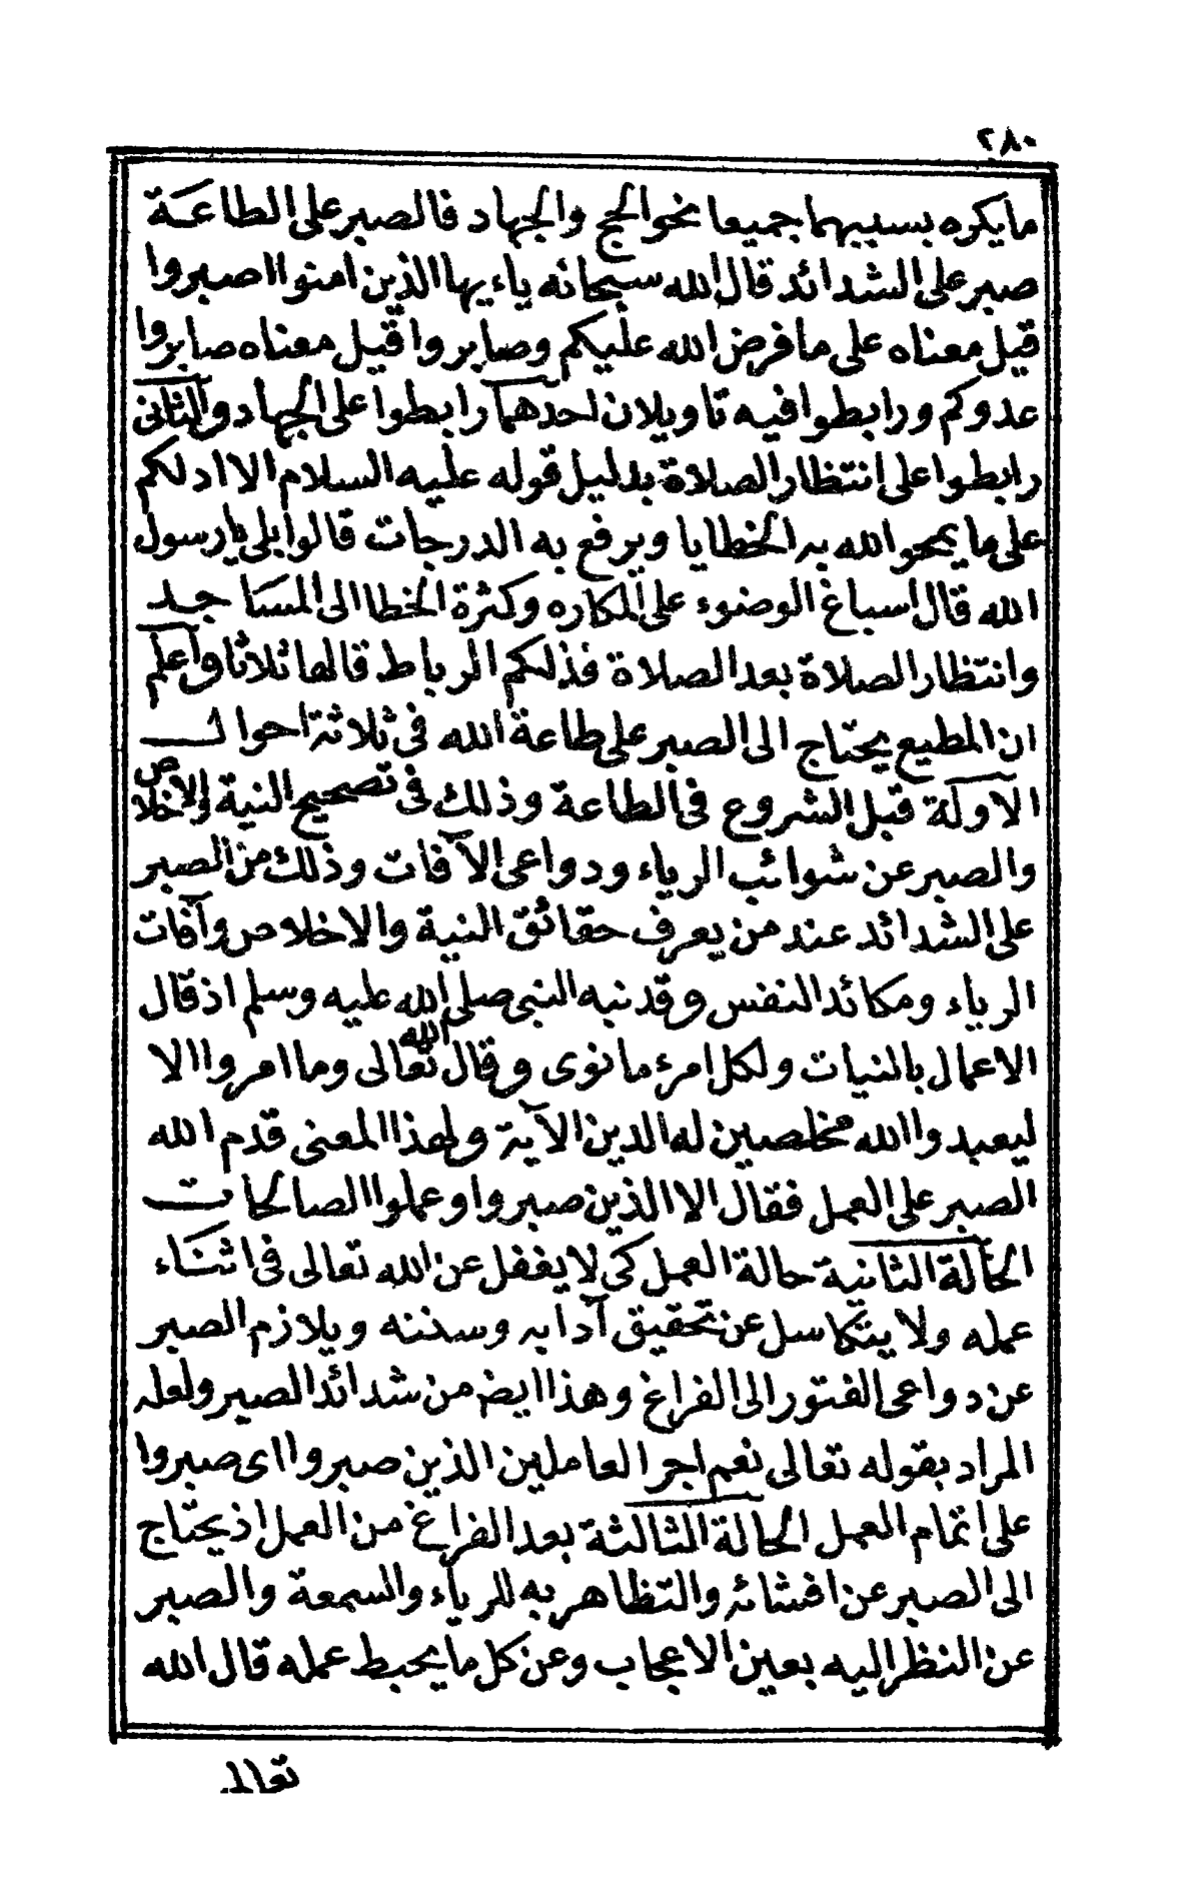 ٢٨٠
ما يكره بسببهما جميعا نحو الحج والجهاد فالصبر على الطاعة
صبر على الشدائد قال الله سبحانه ياءيها الذين امنوا اصبروا
قيل معناه على ما فرض الله عليكم وصابروا قيل معناه صابروا
عدوكم ورابطوا فيه تاويلان احدهما رابطوا على الجهاد والثانى
رابطوا على انتظار الصلاة بدليل قوله عليه السلام الا ادلكم
على ما يمحو الله به الخطايا ويرفع به الدرجات قالوا بلى يا رسول
الله قال اسباغ الوضوء على المكاره وكثرة الخطا الى المساجد
وانتظار الصلاة بعد الصلاة فذلكم الرباط قالها ثلاثا واعلم
ان المطيع يحتاج الى الصبر على طاعة الله فى ثلاثة احوال
الاولة قبل الشروع فى الطاعة وذلك فى تصحيح النية والاخلاص
والصبر عن شوائب الرياء ودواعى الآفات وذلك من الصبر
على الشدائد عند من يعرف حقائق النية والاخلاص وآفات
الرياء ومكائد النفس وقد نبه النبى صلى الله عليه وسلم اذ قال
الاعمال بالنيات ولكل امرء ما نوى وقال الله تعالى وما امروا الا
ليعبدوا الله مخلصين له الدين الآية ولهذا المعنى قدم الله
الصبر على العمل فقال الا الذين صبروا وعملوا الصالحات
الحالة الثانية حالة العمل كى لا يغفل عن الله تعالى فى اثناء
عمله ولا يتكاسل عن تحقيق آدابه وسننه ويلازم الصبر
عن دواعى الفتور الى الفراغ وهذا ايض من شدائد الصبر ولعله
المراد بقوله تعالى نعم اجر العاملين الذين صبروا اى صبروا
على اتمام العمل الحالة الثالثة بعد الفراغ من العمل اذ يحتاج
الى الصبر عن افشائه والتظاهر به للرياء والسمعة والصبر
عن النظر اليه بعين الاعجاب وعن كل ما يحبط عمله قال الله
تعالى